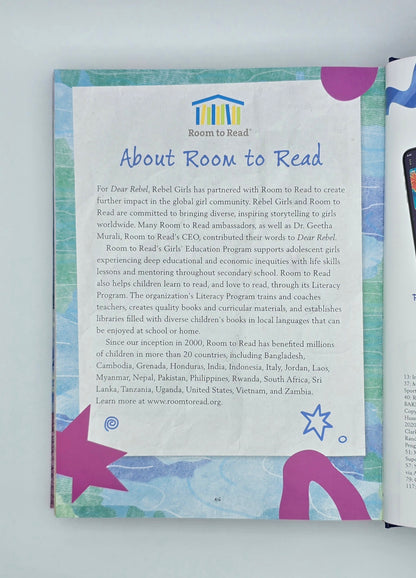 Room to Read
About Room to Read
For Dear Rebel, Rebel Girls has partnered with Room to Read to create
further impact in the global girl community. Rebel Girls and Room to
Read are committed to bringing diverse, inspiring storytelling to girls
worldwide. Many Room to Read ambassadors, as well as Dr. Geetha
Murali, Room to Read's CEO, contributed their words to Dear Rebel.
Room to Read's Girls' Education Program supports adolescent girls
experiencing deep educational and economic inequities with life skills
lessons and mentoring throughout secondary school. Room to Read
also helps children learn to read, and love to read, through its Literacy
Program. The organization's Literacy Program trains and coaches
teachers, creates quality books and curricular materials, and establishes
libraries filled with diverse children's books in local languages that can
be enjoyed at school or home.
Since our inception in 2000, Room to Read has benefited millions
of children in more than 20 countries, including Bangladesh,
Cambodia, Grenada, Honduras, India, Indonesia, Italy, Jordan, Laos,
Myanmar, Nepal, Pakistan, Philippines, Rwanda, South Africa, Sri
Lanka, Tanzania, Uganda, United States, Vietnam, and Zambia.
Learn more at www.roomtoread.org.